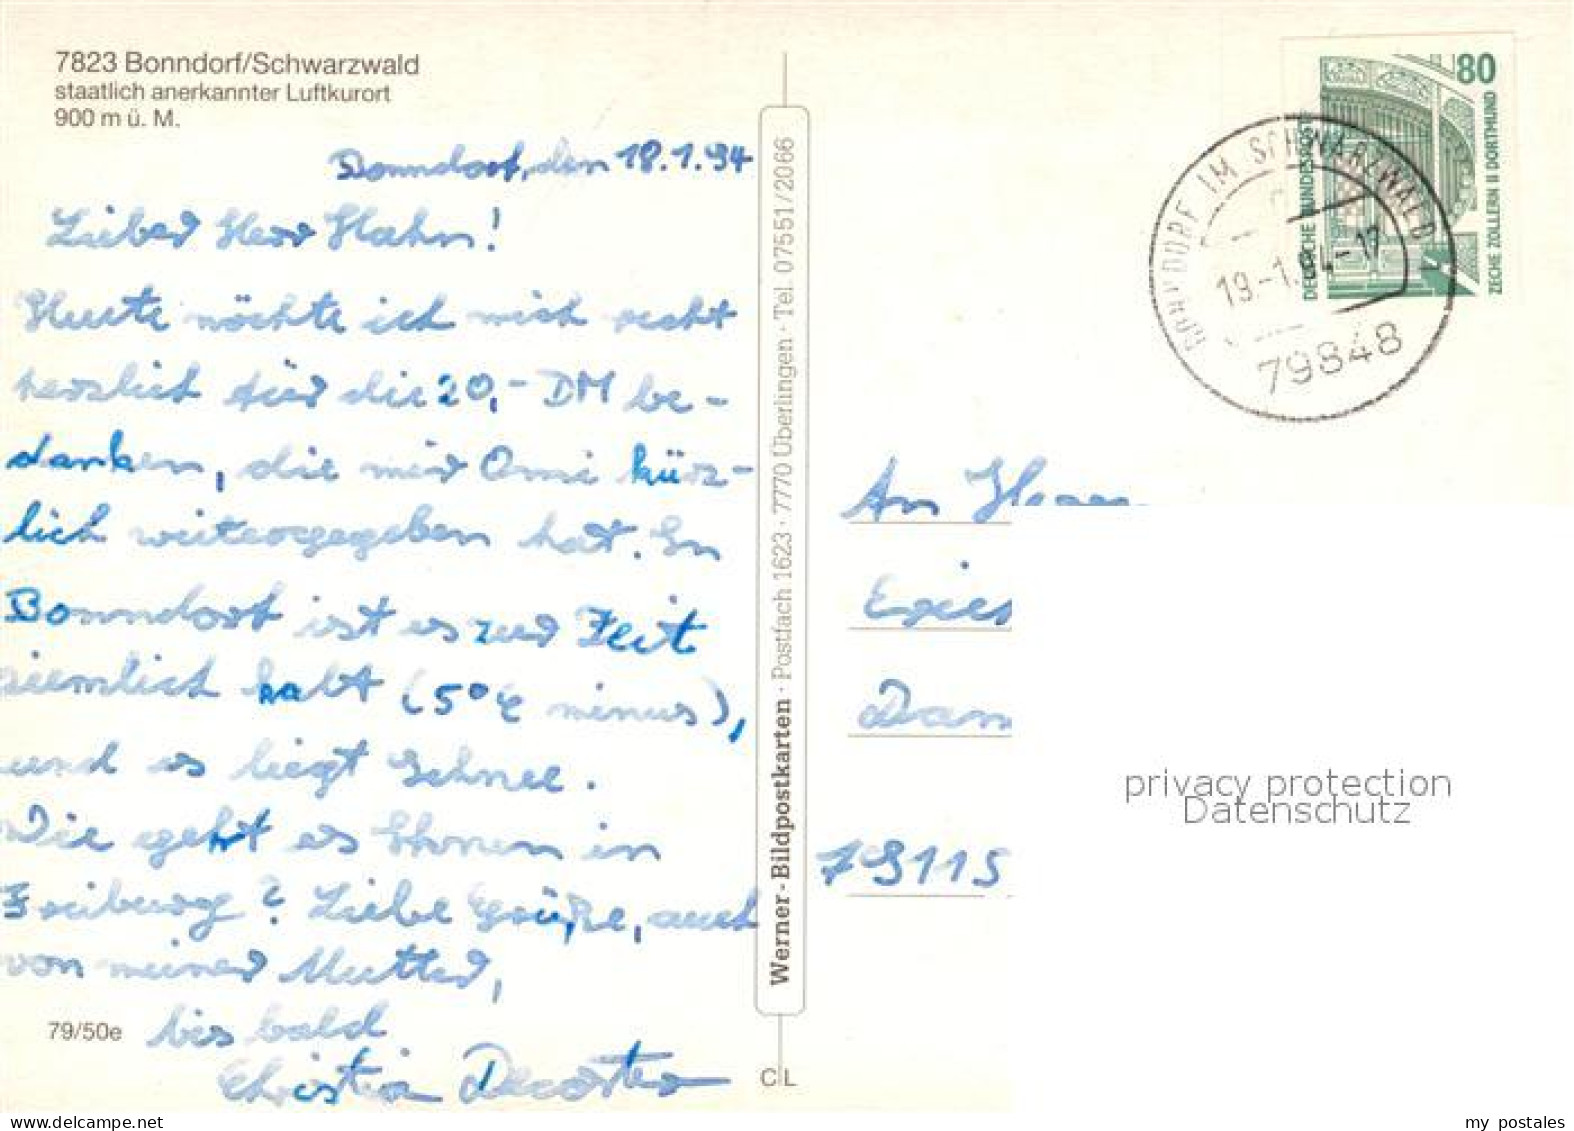 7823 Bonndorf/Schwarzwald
staatlich anerkannter Luftkurort
900 m ü. M.
Bonndorf, den 18.1.94
Lieber Herr Hahn!
Heute möchte ich mich recht
herzlich für die 20,- DM be-
danken, die mir Omi kürz-
lich weitergegeben hat. In
Bonndorf ist es zur Zeit
ziemlich kalt (5°C minus),
und es liegt Schnee.
Wie geht es Ihnen in
Freiburg? Liebe Grüße, auch
von meiner Mutter,
bis bald
Christian
79/50e
Werner-Bildpostkarten · Postfach 1623 · 7770 Überlingen · Tel. 07551/2066
C L
80
DEUTSCHE BUNDESPOST
ZECHE ZOLLERN II DORTMUND
BONNDORF IM SCHWARZWALD
19.-1.94-17
79848
An
79115
privacy protection
Datenschutz
delcampe.net
my_postales